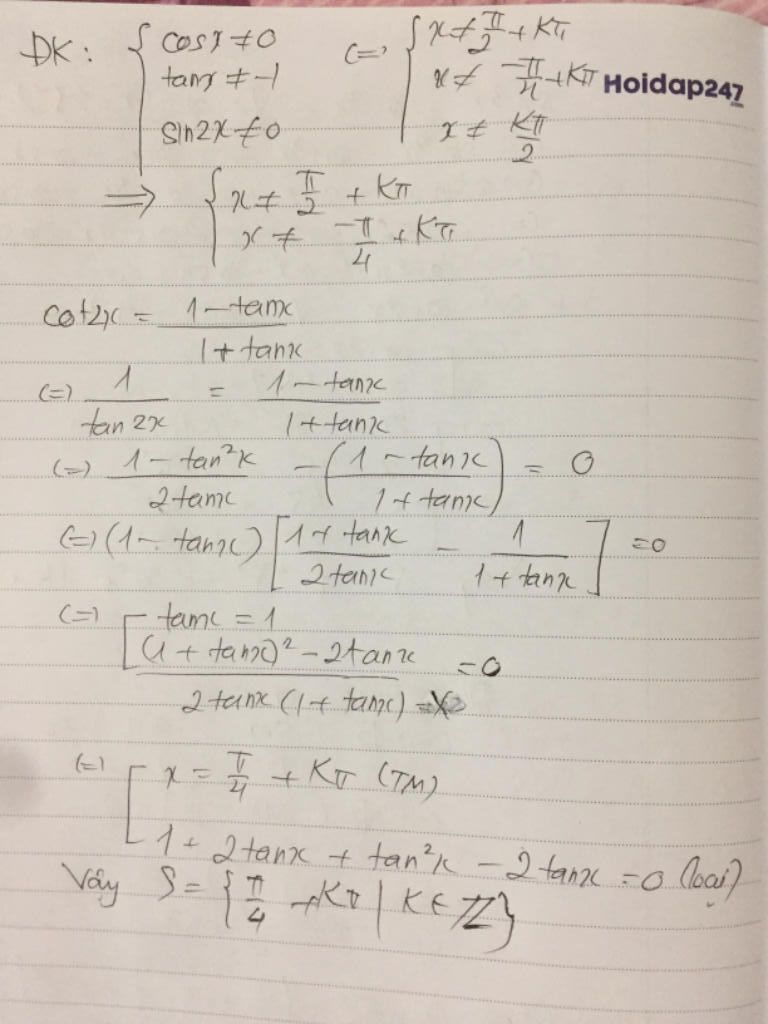 ĐK: { cosx ≠ 0 (=) { x ≠ π/2 + Kπ
tanx ≠ -1 x ≠ -π/4 + Kπ Hoidap247.com
sin2x ≠ 0 x ≠ Kπ/2
=> { x ≠ π/2 + Kπ
x ≠ -π/4 + Kπ
cot2x = (1 - tanx)/(1 + tanx)
(=) 1/(tan2x) = (1 - tanx)/(1 + tanx)
(=) (1 - tan²x)/(2tanx) - ((1 - tanx)/(1 + tanx)) = 0
(=) (1 - tanx) [(1 + tanx)/(2tanx) - 1/(1 + tanx)] = 0
(=) [ tanx = 1
((1 + tanx)² - 2tanx)/(2tanx(1 + tanx)) = 0
(=) [ x = π/4 + Kπ (TM)
1 + 2tanx + tan²x - 2tanx = 0 (loại)
Vây S = {π/4 + Kπ | K ∈ Z}